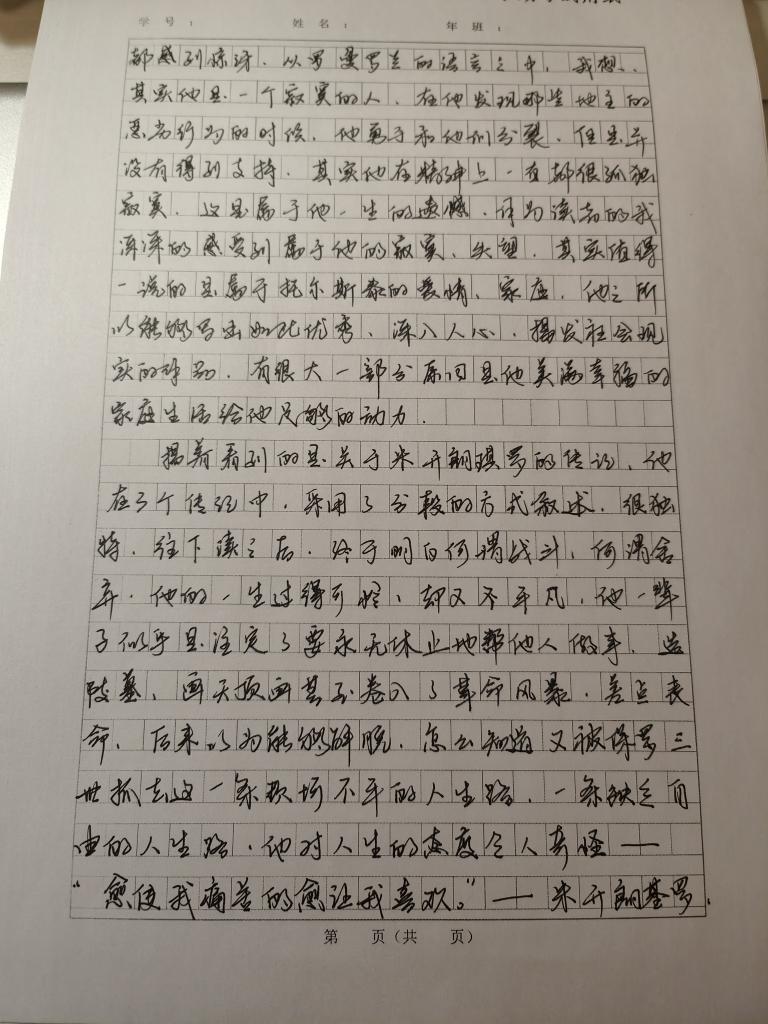 学 号 : 姓 名 : 年 班 :
都感到惊讶.从罗曼罗兰的语言之中,我想.
其实他是一个寂寞的人.在他发现那些地主的
恶劣行为的时候,他勇于和他们分裂.但是并
没有得到支持.其实他在精神上一直都很孤独
寂寞.这是属于他一生的遗憾.作为读者的我
深深的感受到属于他的寂寞、失望.其实值得
一说的是属于托尔斯泰的爱情、家庭.他之所
以能够写出如此优秀、深入人心.揭发社会现
实的.有很大一部分原因是他美满幸福的
家庭生活给他足够的动力.
接着看到的是关于米开朗琪罗的传记.他
在这个传记中,采用了分段的方式叙述.很独
特.往下读之后.终于明白何谓战斗,何谓舍
弃.他的一生过得可悲、却又不平凡.他一辈
子似乎是注定了要永无休止地帮他人做事.造
陵墓、画天顶画甚至卷入了革命风暴.差点丧
命.后来以为能够解脱.怎么知道又被保罗三
世抓去这一条坎坷不平的人生路.一条缺乏自
由的人生路.他对人生的态度令人奇怪——
“愈使我痛苦的愈让我喜欢。”——米开朗基罗.
第 页(共 页)